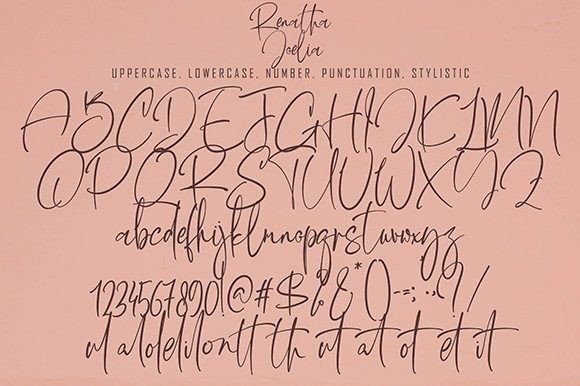 Renatha
Joelia
UPPERCASE, LOWERCASE, NUMBER, PUNCTUATION, STYLISTIC
ABCDEFGHIJKLMN
OPQRSTUVWXYZ
abcdefhijklmnopqrstuvwxyz
1234567890!@#$%&*()-=;:,.?/
at ot et it